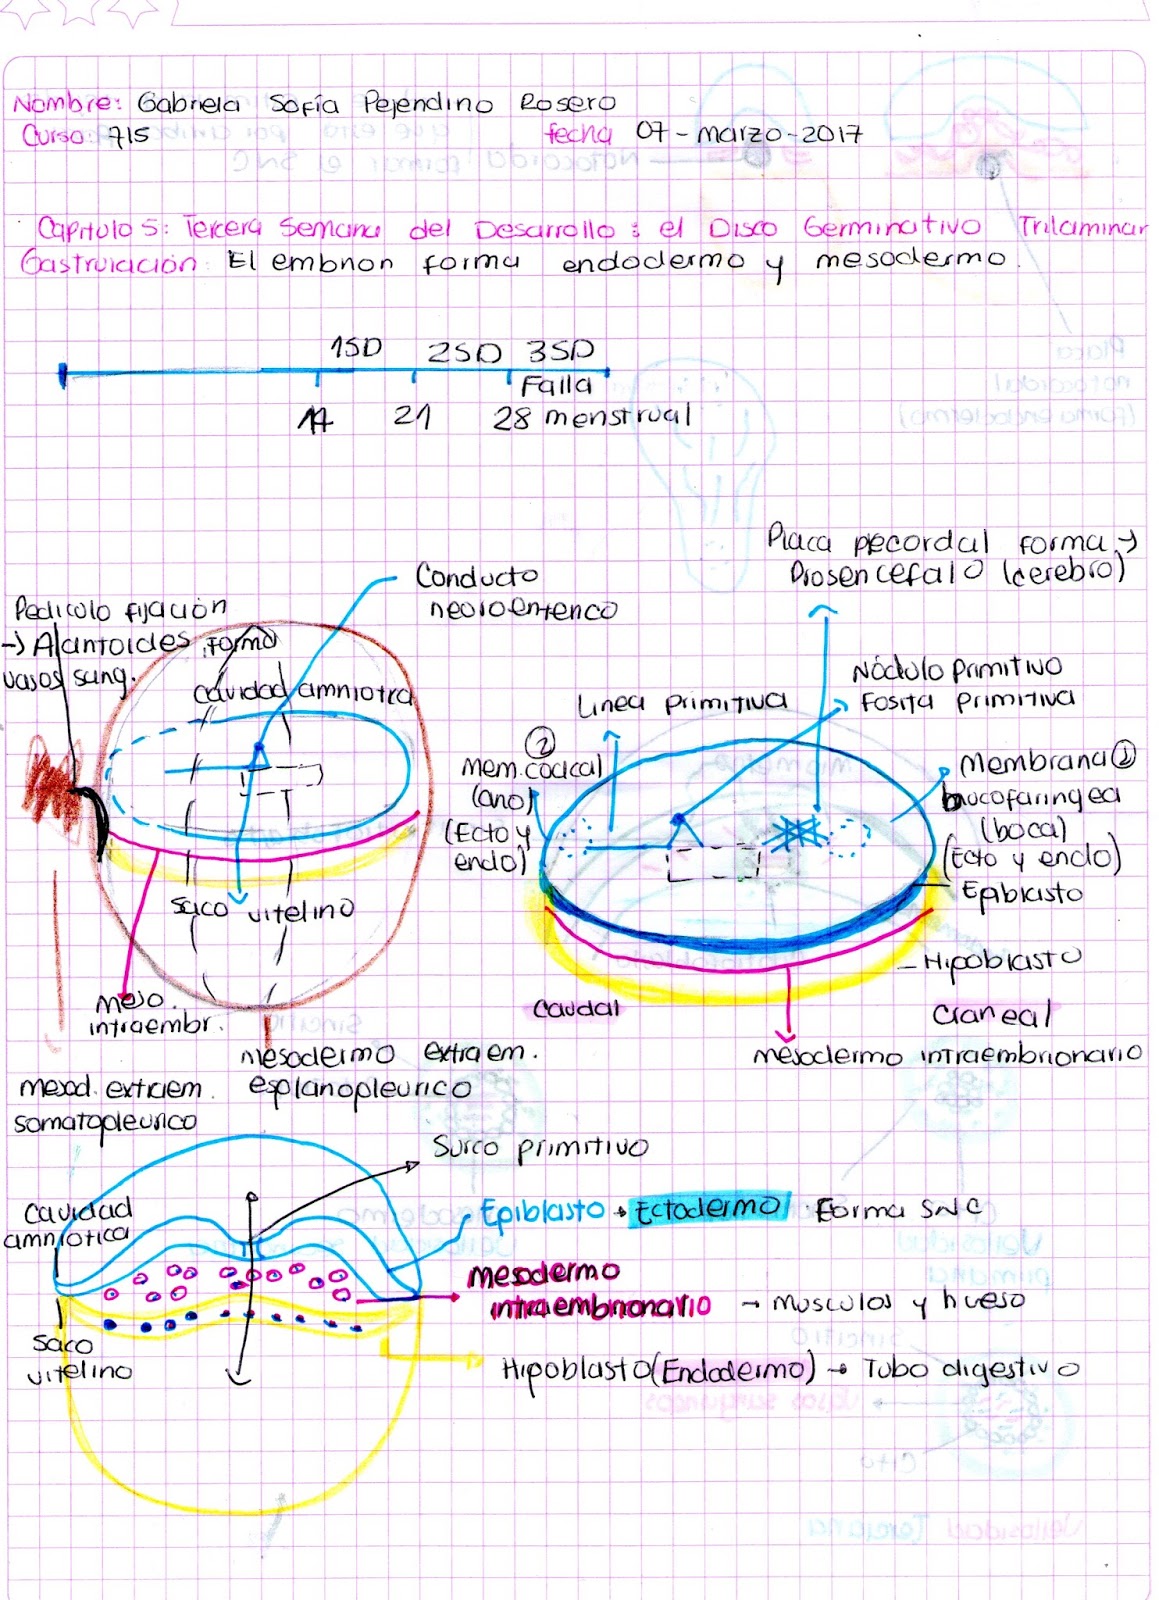 Nombre: Gabriela Sofía Pejendino Rosero
Curso: 715 fecha 07-marzo-2017
Capítulo 5: Tercera Semana del Desarrollo: el Disco Germinativo Trilaminar
Gastrulación: El embrion forma endodermo y mesodermo.
1SD 2SD 3SD
Falla
14 21 28 menstrual
Placa precordal forma →
Prosencefalo (cerebro)
Conducto
neuroenterico
Pediculo fijación
→ Alantoides forma
vasos sang.
cavidad amniotica
Nódulo Primitivo
Fosita primitiva
Linea primitiva
2
Mem. cloacal
(ano)
(Ecto y
endo)
Membrana 2
bucofaringea
(boca)
(Ecto y endo)
Epiblasto
Hipoblasto
saco vitelino
meso.
intraembr.
caudal
craneal
mesodermo extraem.
esplanopleurico
mesodermo intraembrionario
mesod. extraem.
somatopleurico
Surco primitivo
cavidad
amniotica
Epiblasto → Ectodermo. Forma SNC
mesodermo
intraembrionario → musculos y hueso
saco
vitelino
Hipoblasto (Endodermo) → Tubo digestivo